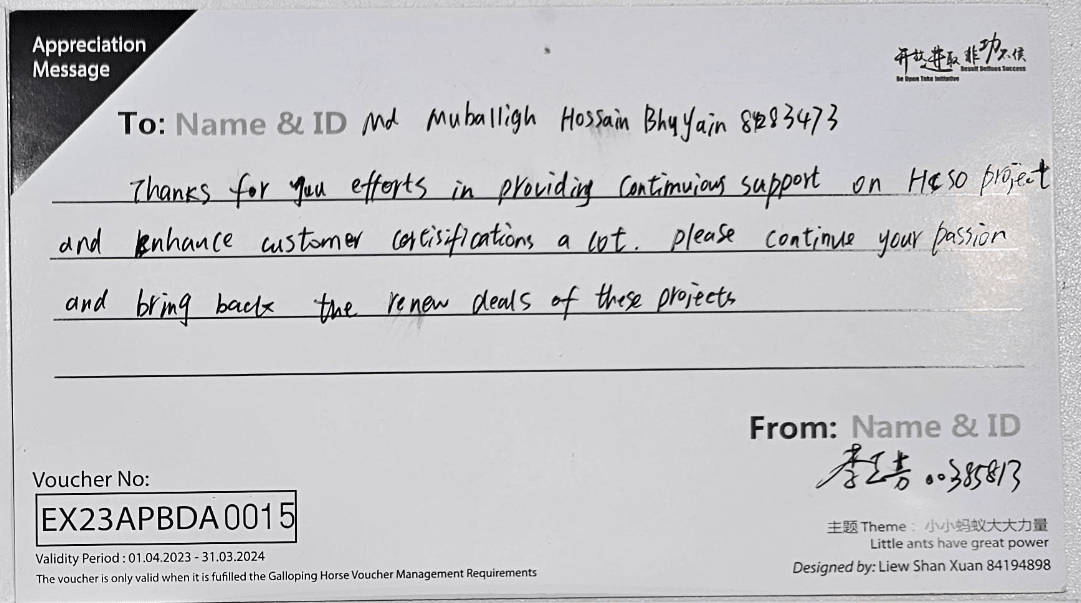 Appreciation
Message
开放进取 非功不侯
Be Open Take Initiative Result Defines Success
To: Name & ID Md Muballigh Hossain Bhuyain 84283473
Thanks for you efforts in providing continuious support on HCSO project
and enhance customer certisifications a lot. please continue your passion
and bring back the renew deals of these projects
From: Name & ID
00385813
Voucher No:
EX23APBDA0015
Validity Period : 01.04.2023 - 31.03.2024
The voucher is only valid when it is fufilled the Galloping Horse Voucher Management Requirements
主题 Theme : 小小蚂蚁大大力量
Little ants have great power
Designed by: Liew Shan Xuan 84194898